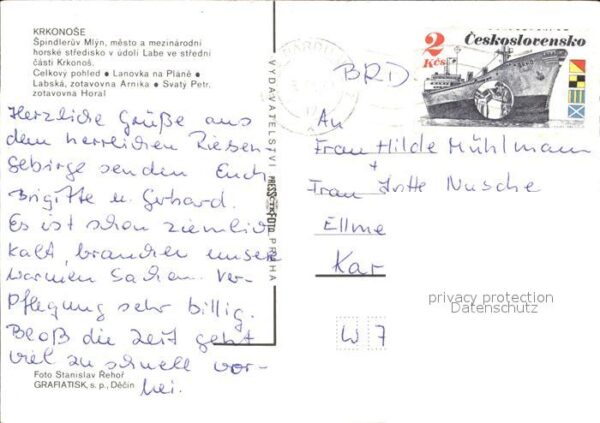 KRKONOŠE
Špindlerův Mlýn, město a mezinárodní
horské středisko v údolí Labe ve střední
části Krkonoš.
Celkový pohled • Lanovka na Pláně •
Labská, zotavovna Arnika • Svatý Petr,
zotavovna Horal
Herzliche Grüße aus
dem herrlichen Riesen-
gebirge senden Euch
Brigitte u. Gerhard.
Es ist schon ziemlich
kalt, brauchen unsere
warmen Sachen. Ver-
pflegung sehr billig.
Bloß die Zeit geht
viel zu schnell vor-
bei.
Foto Stanislav Řehoř
GRAFIATISK, s. p., Děčín
VYDAVATELSTVÍ PRESSFOTO PRAHA
2 Kčs
Československo
BRD.
An
Frau Hilde Mühlmann
+
Frau Nusche
Ellme
Kar
privacy protection
Datenschutz
W 7